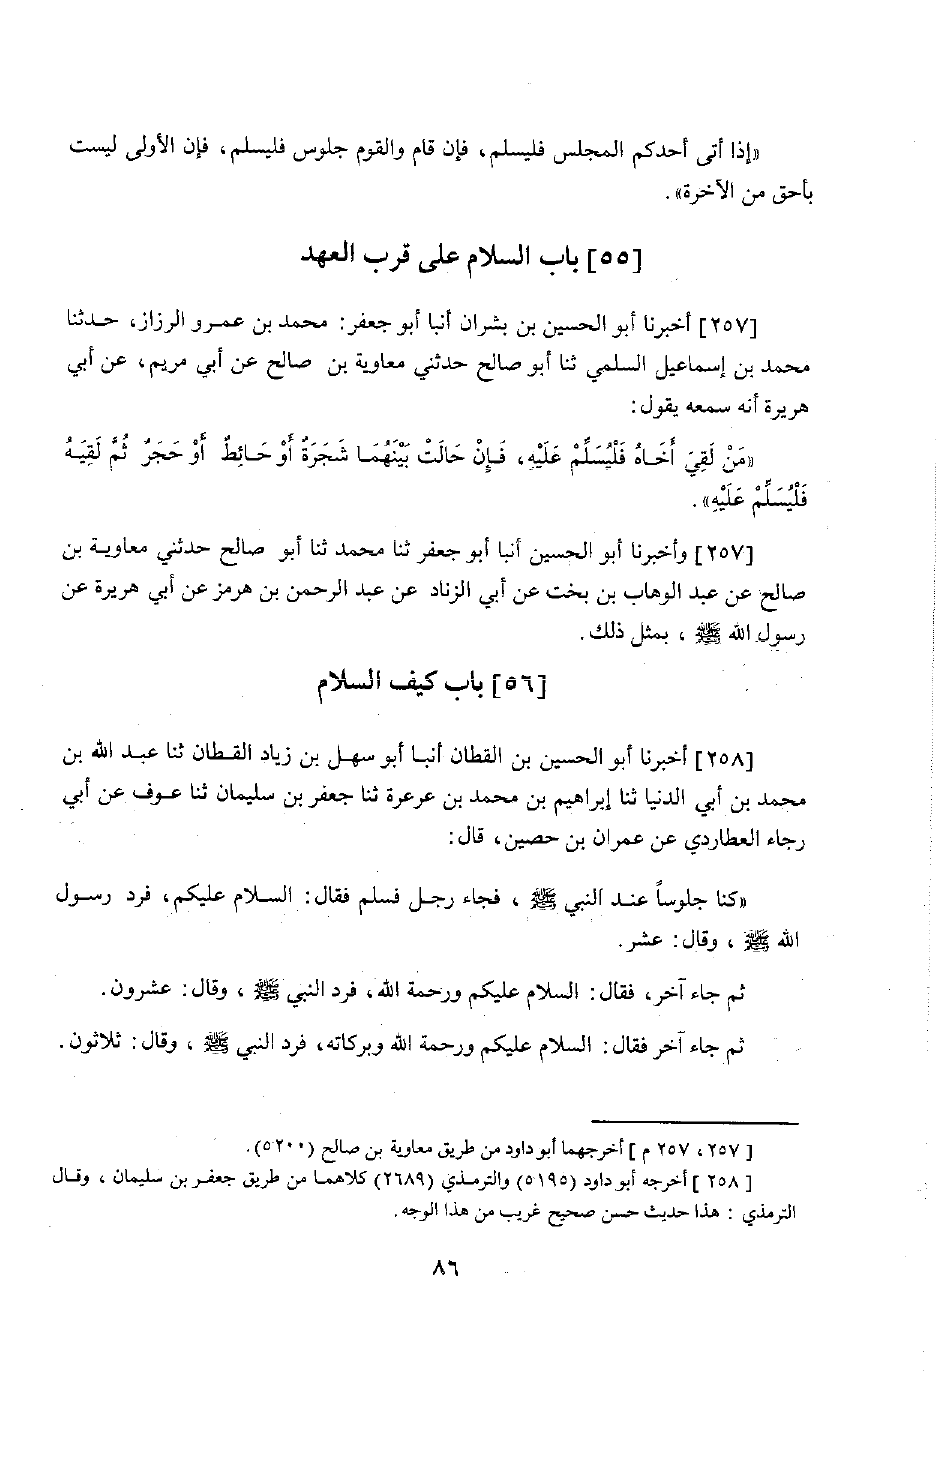 «إذا أتى أحدكم المجلس فليسلم، فإن قام والقوم جلوس فليسلم، فإن الأولى ليست
بأحق من الآخرة».
[٥٥] باب السلام على قرب العهد
[٢٥٧] أخبرنا أبو الحسين بن بشران أنبا أبو جعفر: محمد بن عمرو الرزاز، حدثنا
محمد بن إسماعيل السلمي ثنا أبو صالح حدثني معاوية بن صالح عن أبي مريم، عن أبي
هريرة أنه سمعه يقول:
«مَنْ لَقِيَ أَخَاهُ فَلْيُسَلِّمْ عَلَيْهِ، فَإِنْ حَالَتْ بَيْنَهُمَا شَجَرَةٌ أَوْ حَائِطٌ أَوْ حَجَرٌ ثُمَّ لَقِيَهُ
فَلْيُسَلِّمْ عَلَيْهِ».
[٢٥٧] وأخبرنا أبو الحسين أنبا أبو جعفر ثنا محمد ثنا أبو صالح حدثني معاوية بن
صالح عن عبد الوهاب بن بخت عن أبي الزناد عن عبد الرحمن بن هرمز عن أبي هريرة عن
رسول الله ﷺ ، بمثل ذلك.
[٥٦] باب كيف السلام
[٢٥٨] أخبرنا أبو الحسين بن القطان أنبا أبو سهل بن زياد القطان ثنا عبد الله بن
محمد بن أبي الدنيا ثنا إبراهيم بن محمد بن عرعرة ثنا جعفر بن سليمان ثنا عوف عن أبي
رجاء العطاردي عن عمران بن حصين، قال:
«كنا جلوساً عند النبي ﷺ ، فجاء رجل فسلم فقال: السلام عليكم، فرد رسول
الله ﷺ ، وقال: عشر.
ثم جاء آخر، فقال: السلام عليكم ورحمة الله، فرد النبي ﷺ ، وقال: عشرون.
ثم جاء آخر فقال: السلام عليكم ورحمة الله وبركاته، فرد النبي ﷺ ، وقال: ثلاثون.
[ ٢٥٧ ، ٢٥٧ م ] أخرجهما أبو داود من طريق معاوية بن صالح (٥٢٠٠).
[ ٢٥٨ ] أخرجه أبو داود (٥١٩٥) والترمذي (٢٦٨٩) كلاهما من طريق جعفر بن سليمان ، وقال
الترمذي : هذا حديث حسن صحيح غريب من هذا الوجه.
٨٦